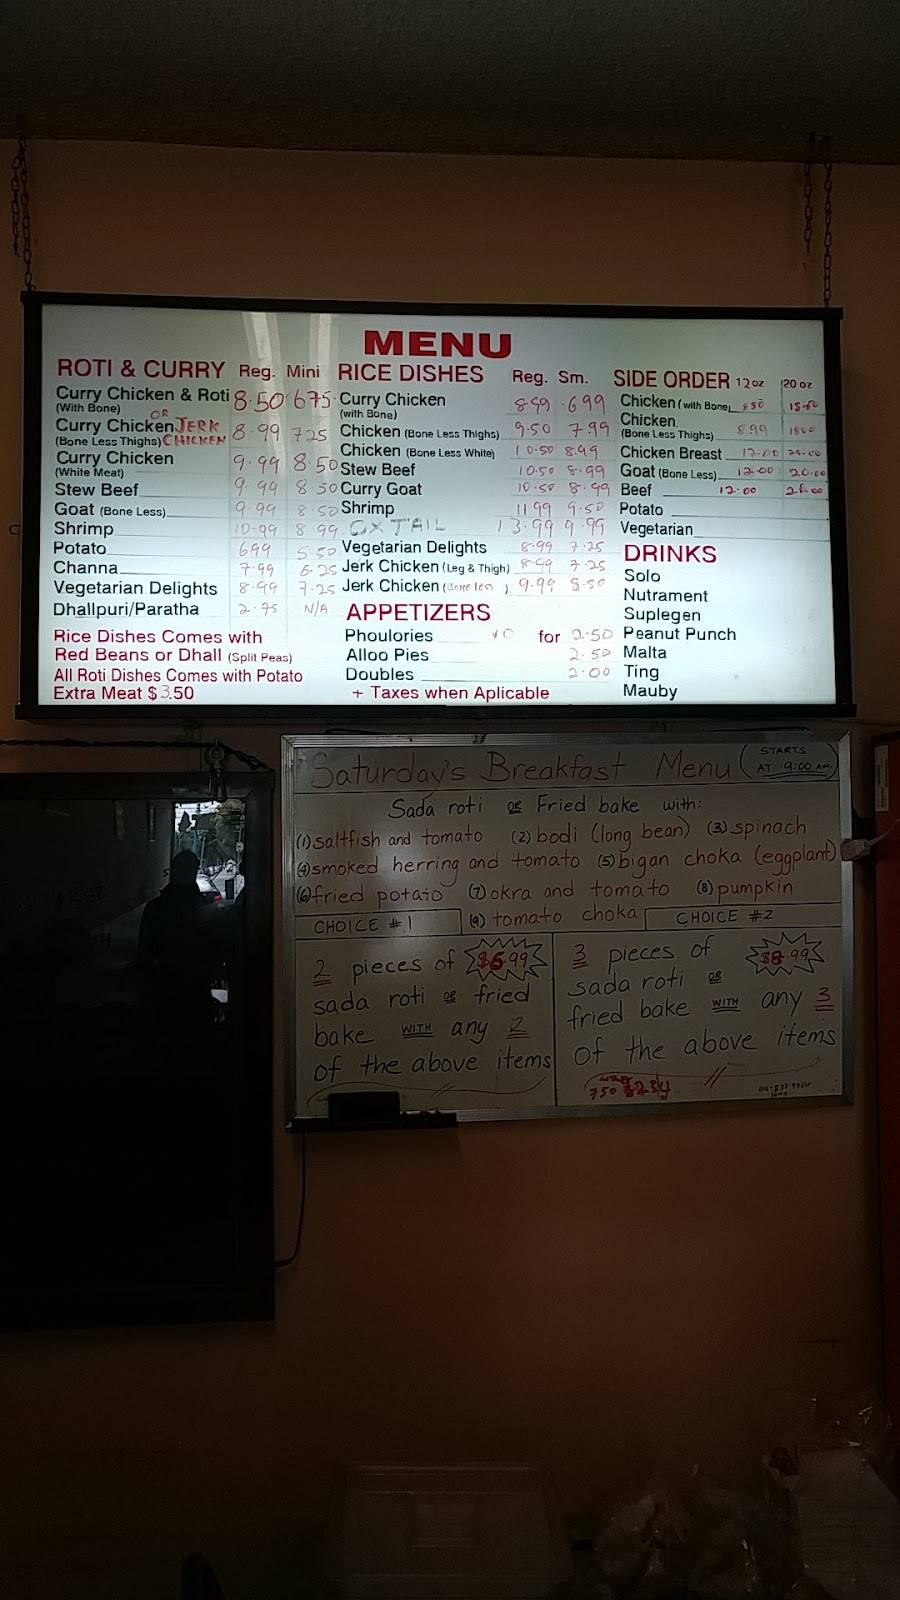 MENU
ROTI & CURRY Reg. Mini
Curry Chicken & Roti 8.50 6.75
(With Bone)
OR
Curry Chicken JERK
(Bone Less Thighs) CHICKEN 8.99 7.25
Curry Chicken 9.99 8.50
(White Meat)
Stew Beef 9.99 8.50
Goat (Bone Less) 9.99 8.50
Shrimp 10.99 8.99
Potato 6.99 5.50
Channa 7.99 6.25
Vegetarian Delights 8.99 7.25
Dhallpuri/Paratha 2.75 N/A
Rice Dishes Comes with
Red Beans or Dhall (Split Peas)
All Roti Dishes Comes with Potato
Extra Meat $3.50
RICE DISHES Reg. Sm.
Curry Chicken 8.99 6.99
(with Bone)
Chicken (Bone Less Thighs) 9.50 7.99
Chicken (Bone Less White) 10.50 8.99
Stew Beef 10.50 8.99
Curry Goat 10.50 8.99
Shrimp 11.99 9.50
OX TAIL 13.99 9.99
Vegetarian Delights 8.99 7.25
Jerk Chicken (Leg & Thigh) 8.99 7.25
Jerk Chicken (Bone less) 9.99 8.50
APPETIZERS
Phoulories for 2.50
Alloo Pies 2.50
Doubles 2.00
+ Taxes when Aplicable
SIDE ORDER 12oz 20 oz
Chicken (with Bone)
Chicken
(Bone Less Thighs) 8.99
Chicken Breast 12.00
Goat (Bone Less) 12.00 20.00
Beef 12.00
Potato
Vegetarian
DRINKS
Solo
Nutrament
Suplegen
Peanut Punch
Malta
Ting
Mauby
Saturday's Breakfast Menu (STARTS AT 9:00 AM)
Sada roti OR Fried bake with:
(1) saltfish and tomato (2) bodi (long bean) (3) spinach
(4) smoked herring and tomato (5) bigan choka (eggplant)
(6) fried potato (7) okra and tomato (8) pumpkin
(9) tomato choka
CHOICE #1
2 pieces of $6.99
sada roti OR fried
bake WITH any 2
of the above items
CHOICE #2
3 pieces of $8.99
sada roti OR
fried bake WITH any 3
of the above items
750